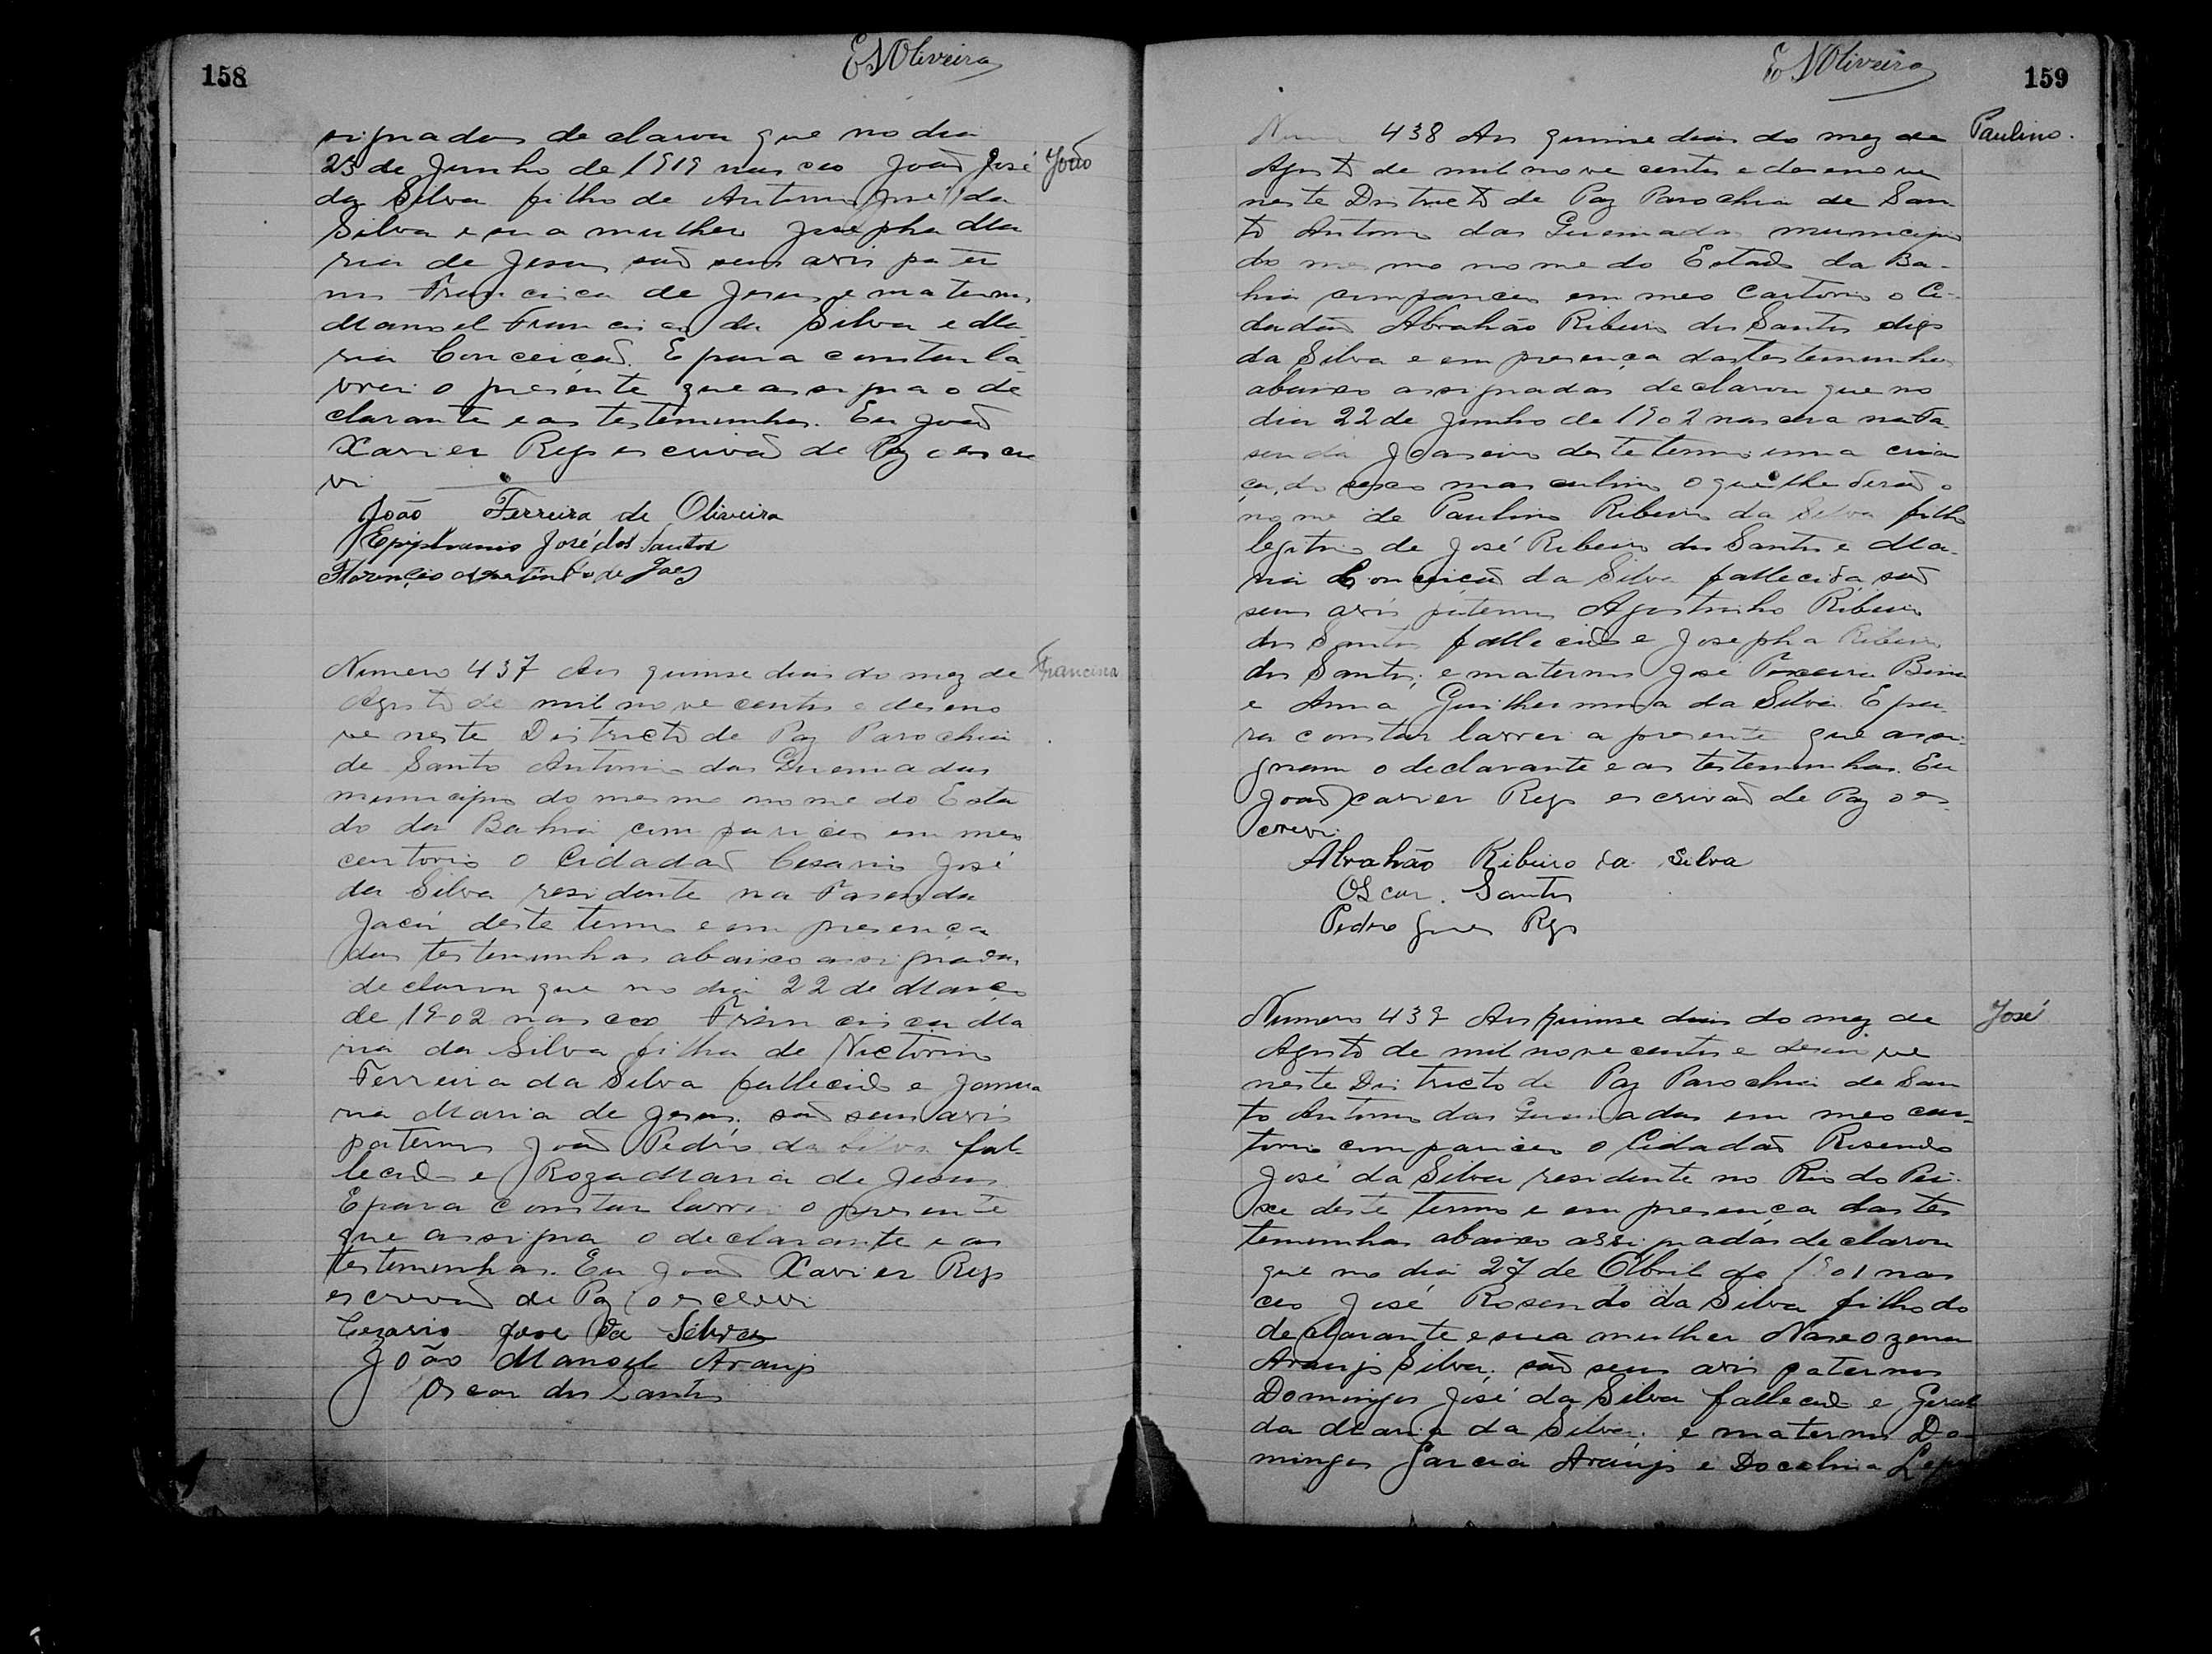 158
ESNOliveira
signadas declarou que no dia
23 de Junho de 1919 nasceo João José
João
da Silva filho de Antonio José da
Silva e sua mulher Josepha Ma
ria de Jesus são seus avós pater
nos Francisca de Jesus e maternos
Manoel Francisco da Silva e Ma
ria Conceição. E para constar la
vrei o presente que assigna o de
clarante e as testemunhas. Eu João
Xavier Rego escrivão de Paz o escre
vi
João Ferreira de Oliveira
Epiphanio José dos Santos
Florencio de Goes
Numero 437 Aos quinse dias do mez de
Francisca
Agosto de mil nove centos e deseno
ve neste Districto de Paz Parochia
de Santo Antonio das Queimadas
municipio do mesmo nome do Esta
do da Bahia compareceo em meo
cartorio o Cidadão Cesario José
da Silva residente na Fasenda
Jacú deste termo e em presença
das testemunhas abaixo assignadas
declarou que no dia 22 de Março
de 1902 nasceo Francisca Ma
ria da Silva filha de Victorino
Ferreira da Silva fallecido e Janua
ria Maria de Jesus, são seus avós
paternos João Pedro da Silva fal
lecido e Roza Maria de Jesus
E para constar lavrei o presente
que assigna o declarante e as
testemunhas. Eu João Xavier Rego
escrivão de Paz o escrevi
Cezario Jose da Silva
João Manoel Araujo
Oscar dos Santos
159
ESNOliveira
438 Aos quinse dias do mez de
Paulino.
Agosto de mil nove centos e desenove
neste Districto de Paz Parochia de San
to Antonio das Queimadas municipio
do mesmo nome do Estado da Ba-
hia compareceo em meo Cartorio o Ci-
dadão Abrahão Ribeiro dos Santos digo
da Silva e em presença das testemunhas
abaixo assignadas declarou que no
dia 22 de Junho de 1902 nascera na Fa
senda Joaseiro deste termo uma crian
ça, do sexo masculino o que lhe derão o
nome de Paulino Ribeiro da Silva filho
legitimo de José Ribeiro dos Santos e Ma-
ria Conceição da Silva fallecida, são
seus avós paternos Agostinho Ribeiro
dos Santos fallecido e Josepha Ribeiro
dos Santos; e maternos José
e Anna Guilhermina da Silva. E pa-
ra constar lavrei a presente que assi-
gnam o declarante e as testemunhas. Eu
João Xavier Rego escrivão de Paz o es-
crevi.
Abrahão Ribeiro da Silva
Oscar. Santos
Pedro Rego
Numero 439 Aos quinse dias do mez de
José
Agosto de mil nove centos e desenove
neste Districto de Paz Parochia de San
to Antonio das Queimadas em meo car-
torio compareceo o Cidadão Rosendo
José da Silva residente no Rio do Pei-
xe deste termo e em presença das tes
temunhas abaixo assignadas declarou
que no dia 27 de Abril de 1901 nas
ceo José Rosendo da Silva filho do
declarante e sua mulher
Araujo Silva; são seus avós paternos
Domingos José da Silva fallecido e Geral
da Maria da Silva; e maternos Do
mingos Garcia Araujo e